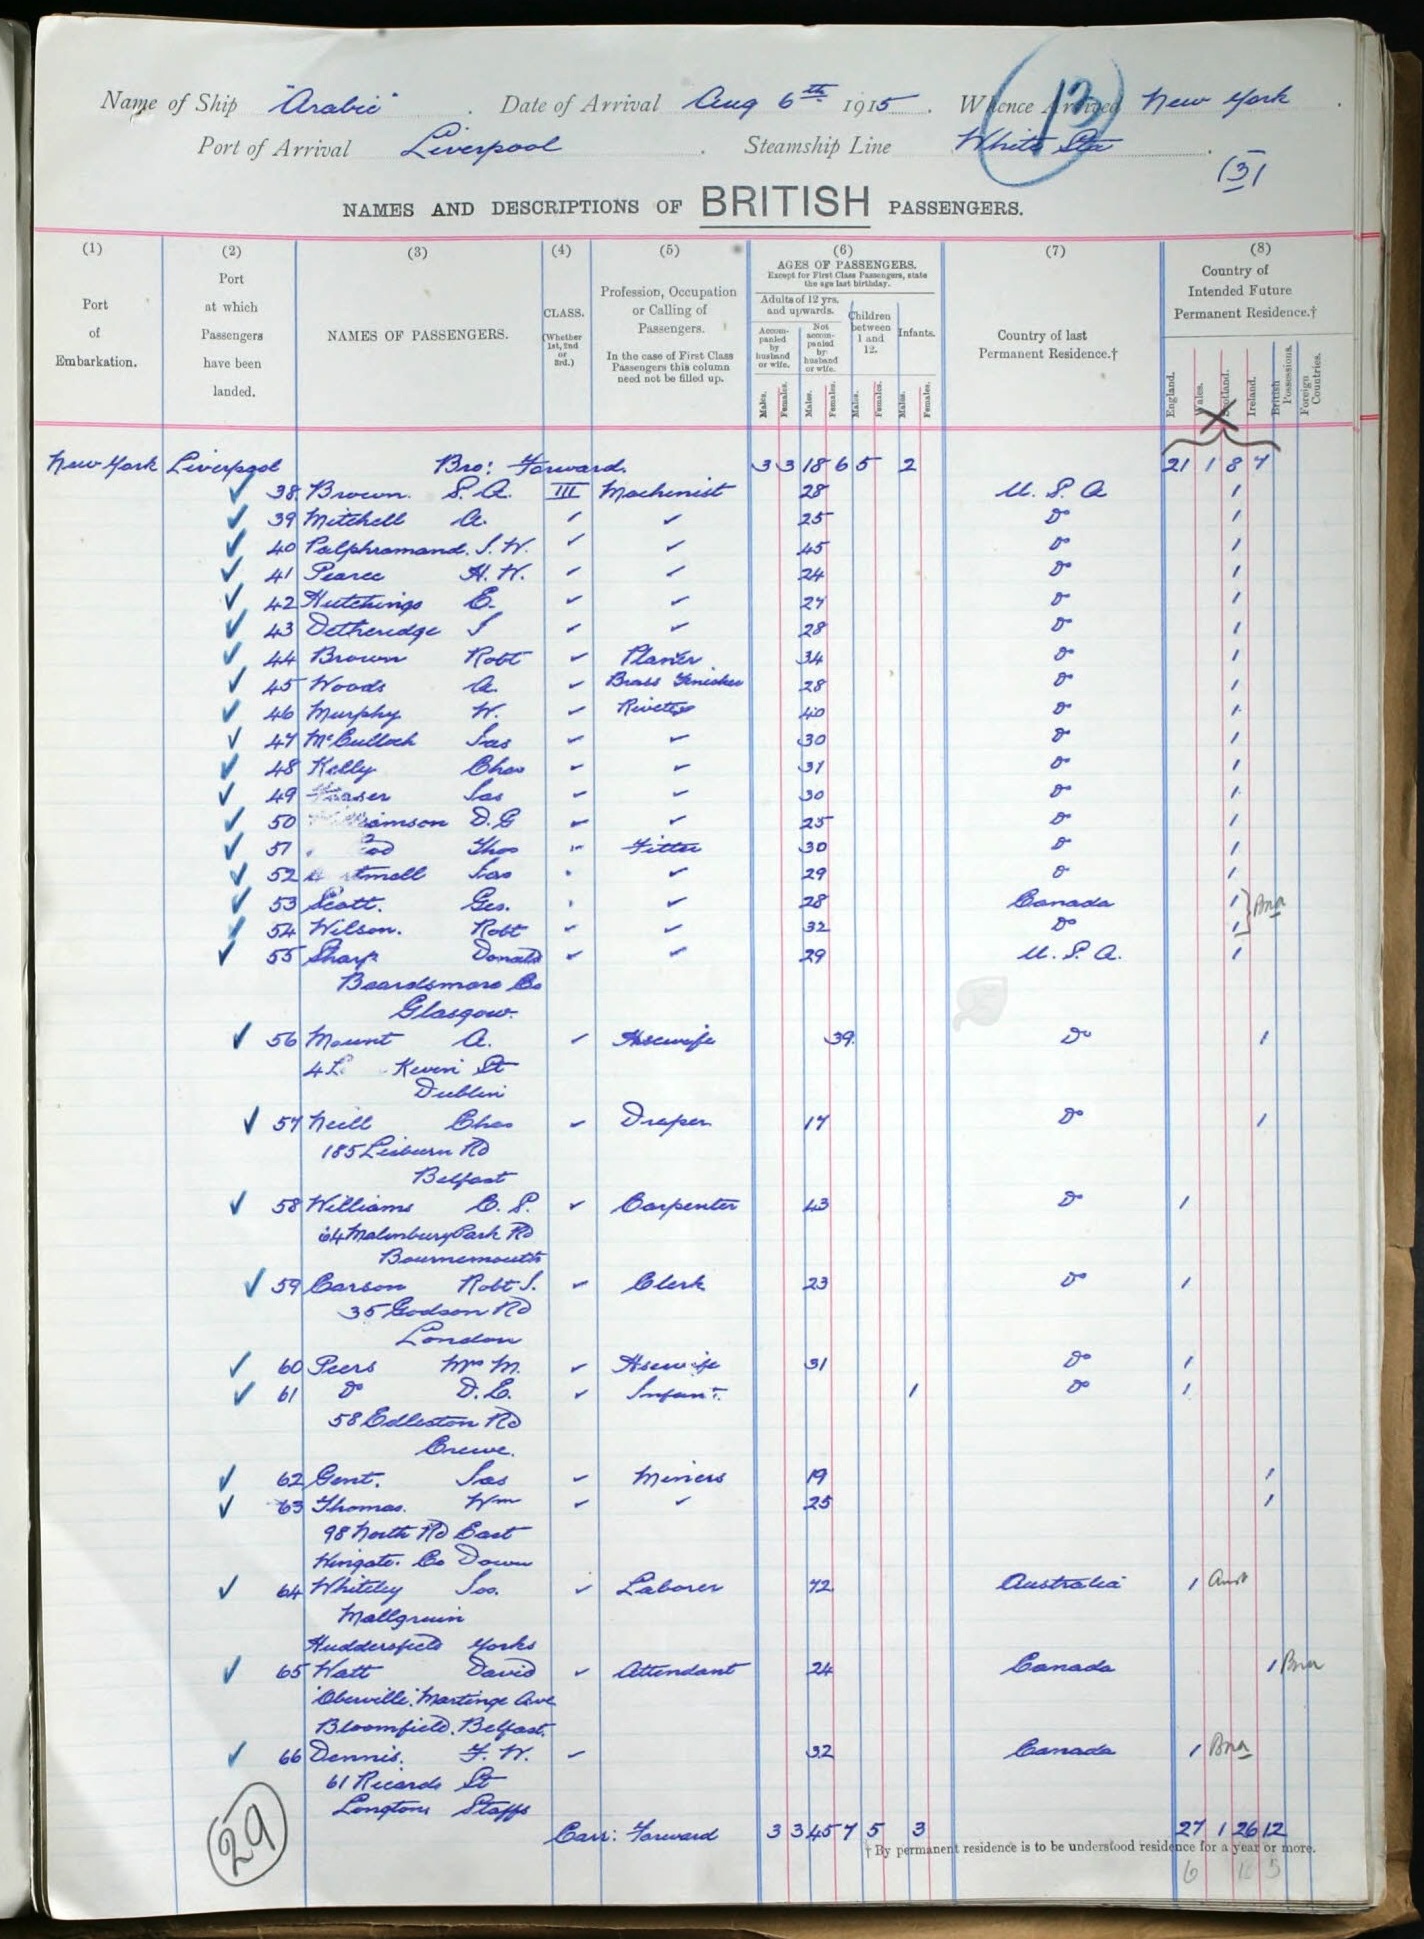 Name of Ship "Arabic" Date of Arrival Aug 6th 1915 Whence Arrived New York
(13)
Port of Arrival Liverpool Steamship Line White Sta
(3)
NAMES AND DESCRIPTIONS OF BRITISH PASSENGERS.
(1) Port of Embarkation.
(2) Port at which Passengers have been landed.
(3) NAMES OF PASSENGERS.
(4) CLASS. (Whether 1st, 2nd or 3rd.)
(5) Profession, Occupation or Calling of Passengers.
In the case of First Class Passengers this column need not be filled up.
(6) AGES OF PASSENGERS.
Except for First Class Passengers, state the age last birthday.
Adults of 12 yrs. and upwards.
Accompanied by husband or wife.
Not accompanied by husband or wife.
Children between 1 and 12.
Infants.
Males. Females. Males. Females. Males. Females. Males. Females.
(7) Country of last Permanent Residence.†
(8) Country of Intended Future Permanent Residence.†
England. Wales. Scotland. Ireland. British Possessions. Foreign Countries.
New York Liverpool Bro: Forward. 3 3 18 6 5 2 21 1 8 7
38 Brown. S. A. III Machinist 28 U. S. A 1
39 Mitchell A. 25 Do 1
40 Palphramand. J. W. 45 Do 1
41 Pearce H. W. 24 Do 1
42 Hutchings E. 27 Do 1
43 Detheridge J 28 Do 1
44 Brown Robt Planer 34 Do 1
45 Woods A. Brass Finisher 28 Do 1
46 Murphy W. Riveter 40 Do 1
47 McCulloch Jas 30 Do 1
48 Kelly Chas 31 Do 1
49 Fraser Jas 30 Do 1
50 D. G 25 Do 1
51 Thos Fitter 30 Do 1
52 Jas 29 Do 1
53 Scott. Geo. 28 Canada 1 Bna
54 Wilson. Robt 32 Do 1
55 Sharp Donald 29 U. S. A. 1
Beardsmore Co
Glasgow.
56 Mount A. Hsewife 39 Do 1
Kevin St
Dublin
57 Neill Chas Draper 17 Do 1
185 Lisburn Rd
Belfast
58 Williams C. S. Carpenter 43 Do 1
64 Malmbury Park Rd
Bournemouth
59 Carson Robt J. Clerk 23 Do 1
35 Godson Rd
London
60 Peers Mrs M. Hsewife 31 Do 1
61 Do D. E. Infant. 1 Do 1
58 Edleston Rd
Crewe.
62 Gent. Jas Miners 19 1
63 Thomas. Wm 25 1
98 North Rd East
Wingate. Co Down
64 Whiteley Jos. Laborer 72 Australia 1 Aust
Huddersfield Yorks
65 Watt David Attendant 24 Canada 1 Bna
Oberville. Martinge Ave
Bloomfield. Belfast.
66 Dennis. F. W. 32 Canada 1 Bna
61 Ricards St
Longton Staffs
29
Carr: Forward 3 3 45 7 5 3 27 1 26 12
† By permanent residence is to be understood residence for a year or more.
6 18 5